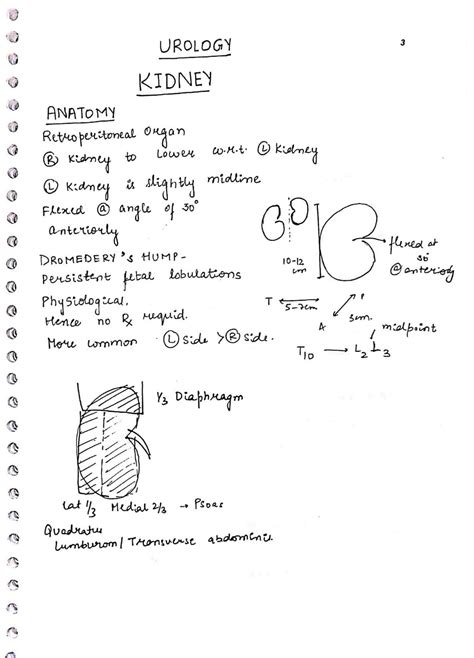 3
UROLOGY
KIDNEY
ANATOMY
Retroperitoneal Organ
Ⓡ Kidney to Lower w.r.t. Ⓛ Kidney
Ⓛ Kidney is slightly midline
Flexed @ angle of 30°
anteriorly
10-12
cm
flexed at
30°
@ anteriorly
DROMEDERY's HUMP-
Persistent fetal lobulations
Physiological,
Hence no Rx requid.
More common Ⓛ side > Ⓡ side.
T ↔ 5-7cm
P
A 3cm.
midpoint
T10 → L2 L3
1/3 Diaphragm
Lat 1/3 Medial 2/3 → Psoas
Quadratus
Lumburom/Transverse abdomenis